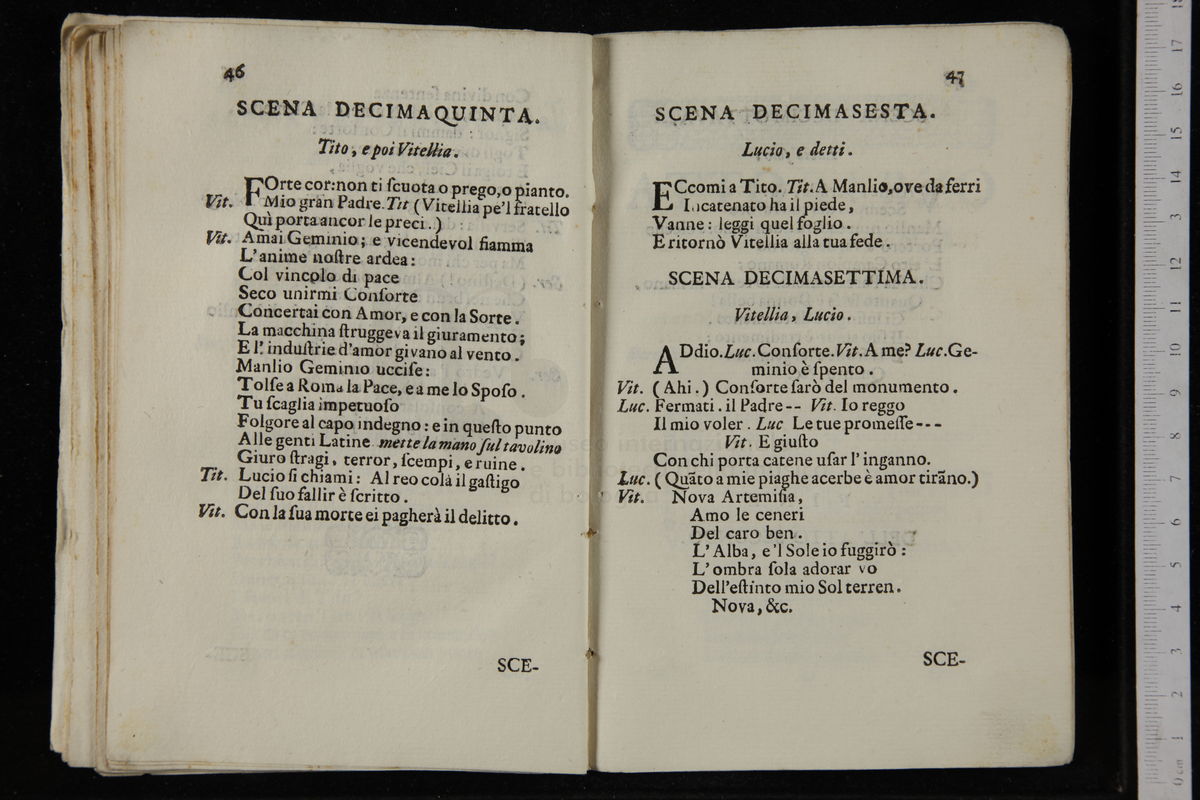 46
SCENA DECIMAQUINTA.
Tito, e poi Vitellia.
FOrte cor: non ti ſcuota o prego, o pianto.
Vit. Mio gran Padre. Tit (Vitellia pe'l fratello
Quì porta ancor le preci.)
Vit. Amai Geminio; e vicendevol fiamma
L'anime noſtre ardea:
Col vincolo di pace
Seco unirmi Conſorte
Concertai con Amor, e con la Sorte.
La macchina ſtruggeva il giuramento;
E l'induſtrie d'amor givano al vento.
Manlio Geminio ucciſe:
Tolſe a Roma la Pace, e a me lo Spoſo.
Tu ſcaglia impetuoſo
Folgore al capo indegno: e in queſto punto
Alle genti Latine mette la mano ſul tavolino
Giuro ſtragi, terror, ſcempi, e ruine.
Tit. Lucio ſi chiami: Al reo colà il gaſtigo
Del ſuo fallir è ſcritto.
Vit. Con la ſua morte ei pagherà il delitto.
SCE-
47
SCENA DECIMASESTA.
Lucio, e detti.
ECcomi a Tito. Tit. A Manlio, ove da ferri
Incatenato ha il piede,
Vanne: leggi quel foglio.
E ritornò Vitellia alla tua fede.
SCENA DECIMASETTIMA.
Vitellia, Lucio.
ADdio. Luc. Conſorte. Vit. A me? Luc. Ge-
minio è ſpento.
Vit. (Ahi.) Conſorte ſarò del monumento.
Luc. Fermati. il Padre-- Vit. Io reggo
Il mio voler. Luc Le tue promeſſe---
Vit. E giuſto
Con chi porta catene uſar l'inganno.
Luc. (Quãto a mie piaghe acerbe è amor tirãno.)
Vit. Nova Artemiſia,
Amo le ceneri
Del caro ben.
L'Alba, e'l Sole io fuggirò:
L'ombra ſola adorar vo
Dell'eſtinto mio Sol terren.
Nova, &c.
SCE-